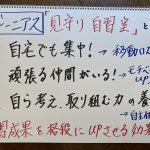 ジーニアス「見守り自習室」と
自宅でも集中! → 移動ロス
頑張る仲間がいる! → モチベ UP
自ら考え、取り組む力の養
自主
習成果を格段にUPさせる効果